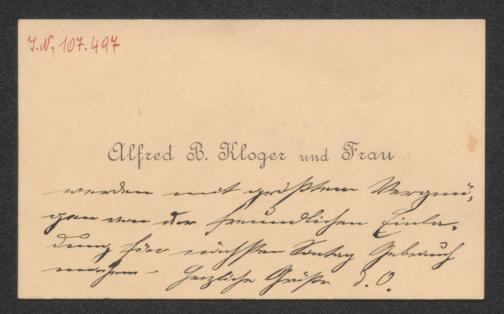 I.N. 107.497
Alfred B. Kloger und Frau
werden mit größtem Vergnü-
gen von der freundlichen Einla-
dung für nächsten Sontag Gebrauch
machen – Herzliche Grüße D. O.